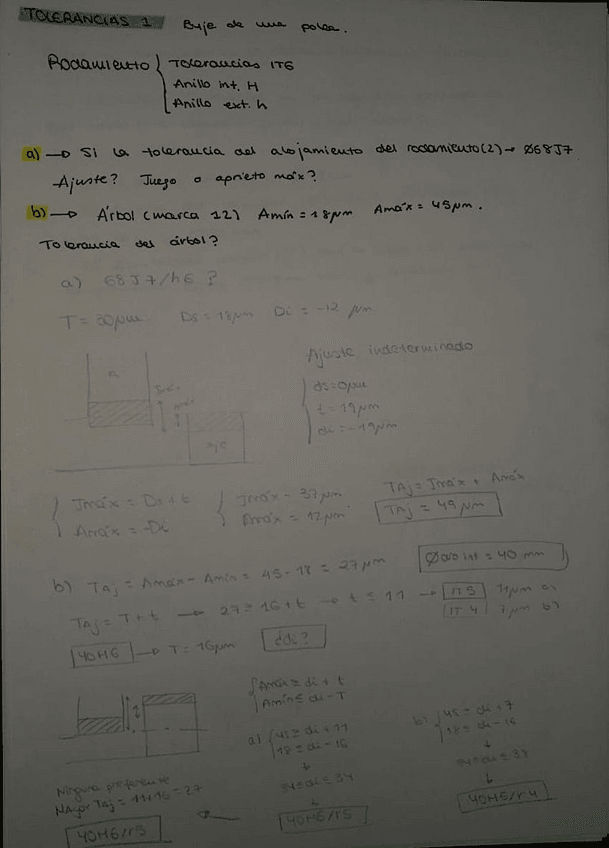 TOLERANCIAS 1 Buje de una polea.
Rodamiento { Tolerancias IT6
Anillo int. H
Anillo ext. h
a) → Si la tolerancia del alojamiento del rodamiento (2) → Ø68J7
Ajuste? Juego o aprieto máx?
b) → Árbol (marca 12) Amín = 18μm Amáx = 45μm.
Tolerancia del árbol?
a) 68J7/h6 ?
T = 30μm Ds = 18μm Di = -12 μm
Ajuste indeterminado
ds = 0μm
t = 19μm
di = -19μm
{ Jmáx = Ds + t { Jmáx = 37μm TAj = Jmáx + Amáx
Amáx = -Di Amáx = 12μm TAj = 49μm
b) TAj = Amáx - Amín = 45 - 18 = 27μm Ø int = 40 mm
TAj = T + t → 27 ≥ 16 + t → t ≤ 11 → IT5 11μm a)
IT4 7μm b)
40H6 → T = 16μm ¿di?
{ Amáx ≥ di + t
Amín ≤ di - T
a) { 45 ≥ di + 11 b) { 45 ≥ di + 7
18 ≤ di - 16 18 ≤ di - 16
34 ≤ di ≤ 34
Ninguna preferente
Mayor TAj = 11 + 16 = 27
40H6/r5 ← 40H6/r5 40H6/r4